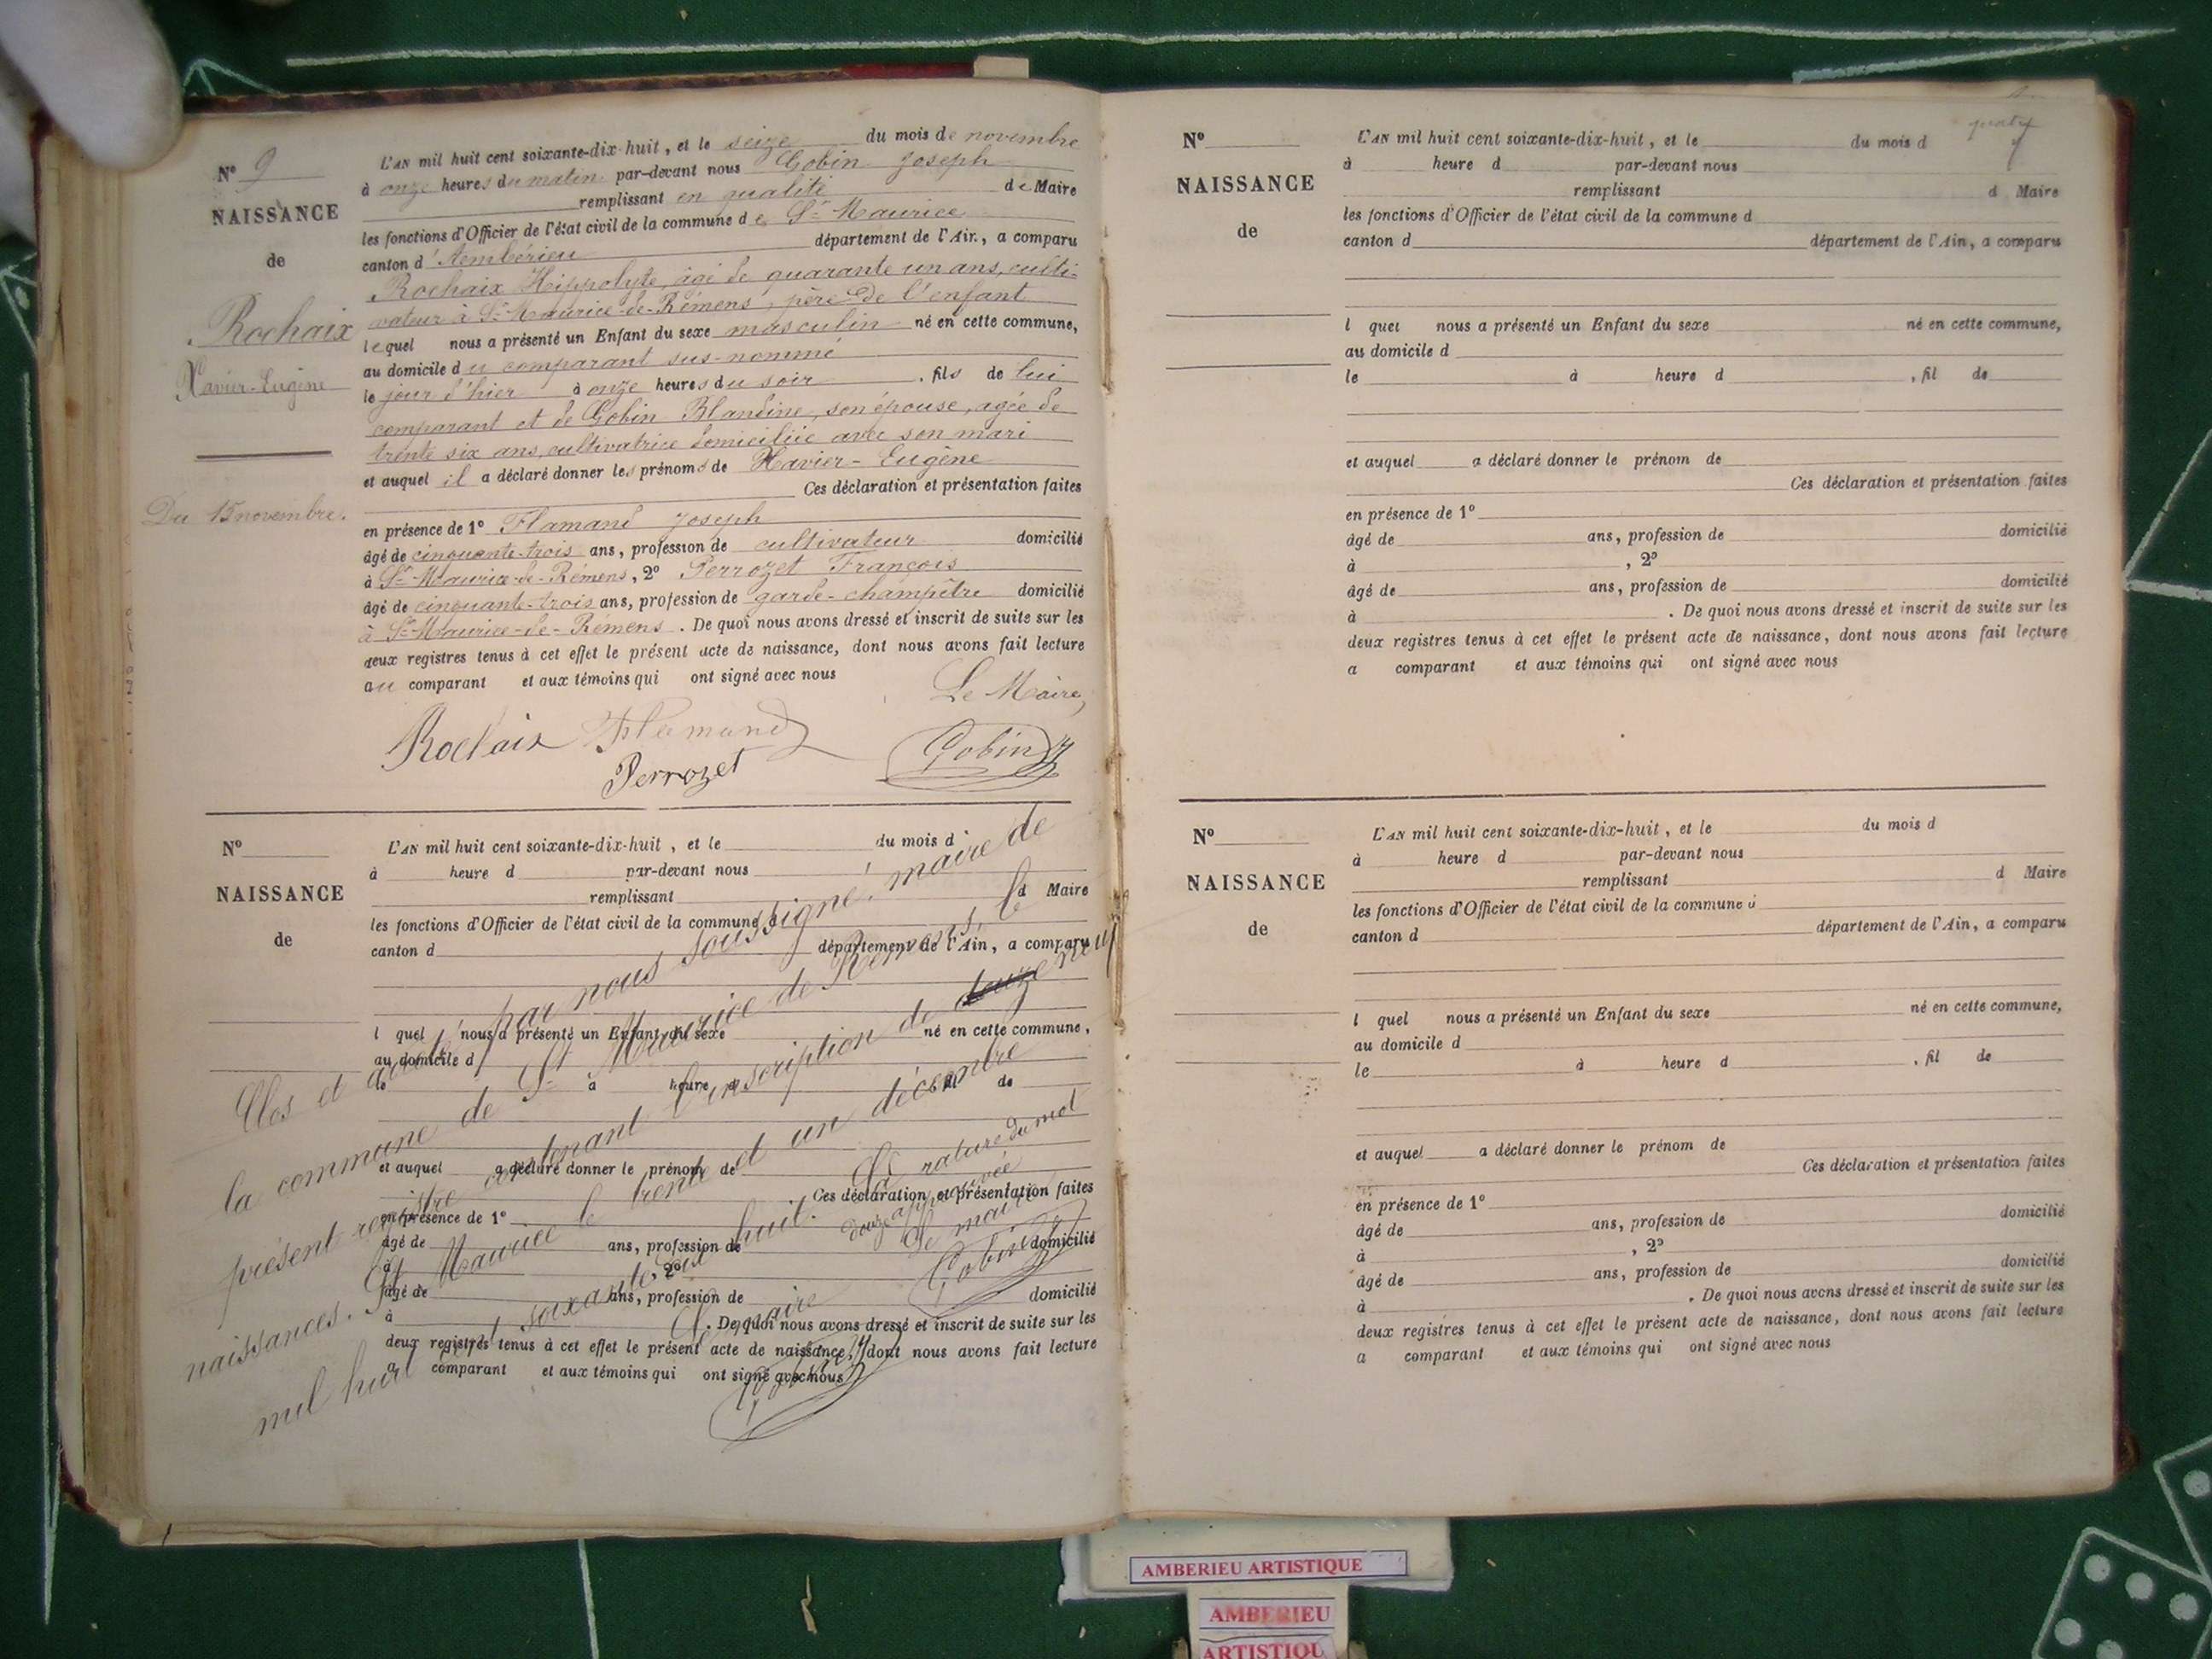 N° 9
NAISSANCE
de
Rochaix
Xavier-Eugène
Du 15 novembre.
L'AN mil huit cent soixante-dix-huit, et le seize du mois de novembre
à onze heures du matin par-devant nous Gobin Joseph
remplissant en qualité de Maire
les fonctions d'Officier de l'état civil de la commune de St Maurice
canton d'Ambérieu département de l'Ain, a comparu
Rochaix Hippolyte, âgé de quarante un ans, culti-
vateur à St Maurice-de-Rémens, père de l'enfant
lequel nous a présenté un Enfant du sexe masculin né en cette commune,
au domicile du comparant sus-nommé
le jour d'hier à onze heures du soir, fils de lui
comparant et de Gobin Blandine, son épouse, agée de
trente six ans, cultivatrice domiciliée avec son mari
et auquel il a déclaré donner les prénoms de Xavier-Eugène
Ces déclaration et présentation faites
en présence de 1° Flamand Joseph
âgé de cinquante-trois ans, profession de cultivateur domicilié
à St-Maurice-de-Rémens, 2° Perrozet François
âgé de cinquante-trois ans, profession de garde-champêtre domicilié
à St-Maurice-de-Rémens. De quoi nous avons dressé et inscrit de suite sur les
deux registres tenus à cet effet le présent acte de naissance, dont nous avons fait lecture
au comparant et aux témoins qui ont signé avec nous
Le Maire,
Rochaix Flamand
Perrozet
Gobin J
N°
NAISSANCE
de
L'AN mil huit cent soixante-dix-huit, et le du mois d
à heure d par-devant nous
remplissant d Maire
les fonctions d'Officier de l'état civil de la commune d
canton d département de l'Ain, a comparu
l quel nous a présenté un Enfant du sexe né en cette commune,
au domicile d
le à heure d , fil de
et auquel a déclaré donner le prénom de
Ces déclaration et présentation faites
en présence de 1°
âgé de ans, profession de domicilié
à , 2°
âgé de ans, profession de domicilié
à . De quoi nous avons dressé et inscrit de suite sur les
deux registres tenus à cet effet le présent acte de naissance, dont nous avons fait lecture
a comparant et aux témoins qui ont signé avec nous
Clos et arrêté par nous soussigné, maire de
la commune de St Maurice de Rémens, le
présent registre contenant l'inscription de douze neuf
naissances. St Maurice le trente et un décembre
mil huit cent soixante dix huit.
Le maire
Gobin J
La rature du mot
douze approuvée
Le maire
Gobin J
N°
NAISSANCE
de
L'AN mil huit cent soixante-dix-huit, et le du mois d
à heure d par-devant nous
remplissant d Maire
les fonctions d'Officier de l'état civil de la commune d
canton d département de l'Ain, a comparu
l quel nous a présenté un Enfant du sexe né en cette commune,
au domicile d
le à heure d , fil de
et auquel a déclaré donner le prénom de
Ces déclaration et présentation faites
en présence de 1°
âgé de ans, profession de domicilié
à , 2°
âgé de ans, profession de domicilié
à . De quoi nous avons dressé et inscrit de suite sur les
deux registres tenus à cet effet le présent acte de naissance, dont nous avons fait lecture
a comparant et aux témoins qui ont signé avec nous
N°
NAISSANCE
de
L'AN mil huit cent soixante-dix-huit, et le du mois d
à heure d par-devant nous
remplissant d Maire
les fonctions d'Officier de l'état civil de la commune d
canton d département de l'Ain, a comparu
l quel nous a présenté un Enfant du sexe né en cette commune,
au domicile d
le à heure d , fil de
et auquel a déclaré donner le prénom de
Ces déclaration et présentation faites
en présence de 1°
âgé de ans, profession de domicilié
à , 2°
âgé de ans, profession de domicilié
à . De quoi nous avons dressé et inscrit de suite sur les
deux registres tenus à cet effet le présent acte de naissance, dont nous avons fait lecture
a comparant et aux témoins qui ont signé avec nous
AMBERIEU ARTISTIQUE
AMBERIEU
ARTISTIQU